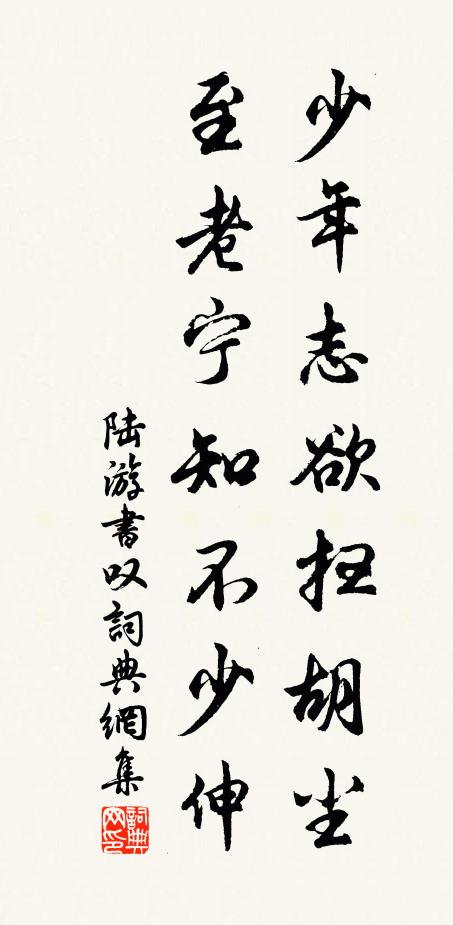 少年志欲扫胡尘
至老宁知不少伸
陆游書叹詞典網集
詞典网印